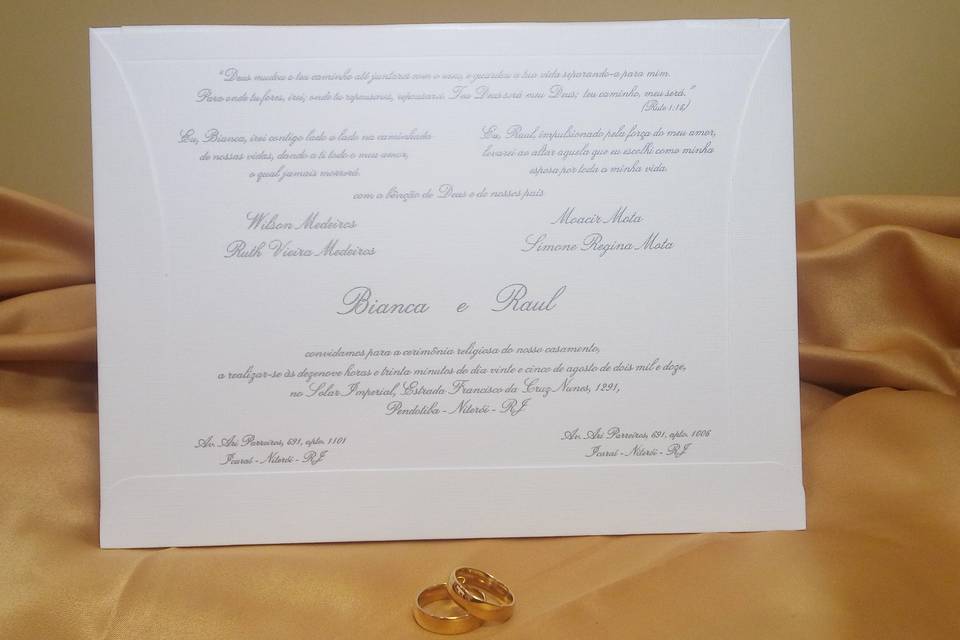 "Deus mudou o teu caminho até juntares com o meu, e guardou a tua vida separando-a para mim.
Para onde tu fores, irei; onde tu repousares, repousarei. Teu Deus será meu Deus; teu caminho, meu será."
(Rute 1:16)
Eu, Bianca, irei contigo lado a lado na caminhada
de nossas vidas, dando a ti todo o meu amor,
o qual jamais morrerá.
Eu, Raul, impulsionado pela força do meu amor,
levarei ao altar aquela que eu escolhi como minha
esposa por toda a minha vida.
com a bênção de Deus e de nossos pais
Wilson Medeiros
Ruth Vieira Medeiros
Moacir Mota
Simone Regina Mota
Bianca e Raul
convidamos para a cerimônia religiosa do nosso casamento,
a realizar-se às dezenove horas e trinta minutos do dia vinte e cinco de agosto de dois mil e doze,
no Solar Imperial, Estrada Francisco da Cruz Nunes, 1291,
Pendotiba - Niterói - RJ
Av. Ari Parreiras, 691, apto. 1101
Icaraí - Niterói - RJ
Av. Ari Parreiras, 691, apto. 1606
Icaraí - Niterói - RJ